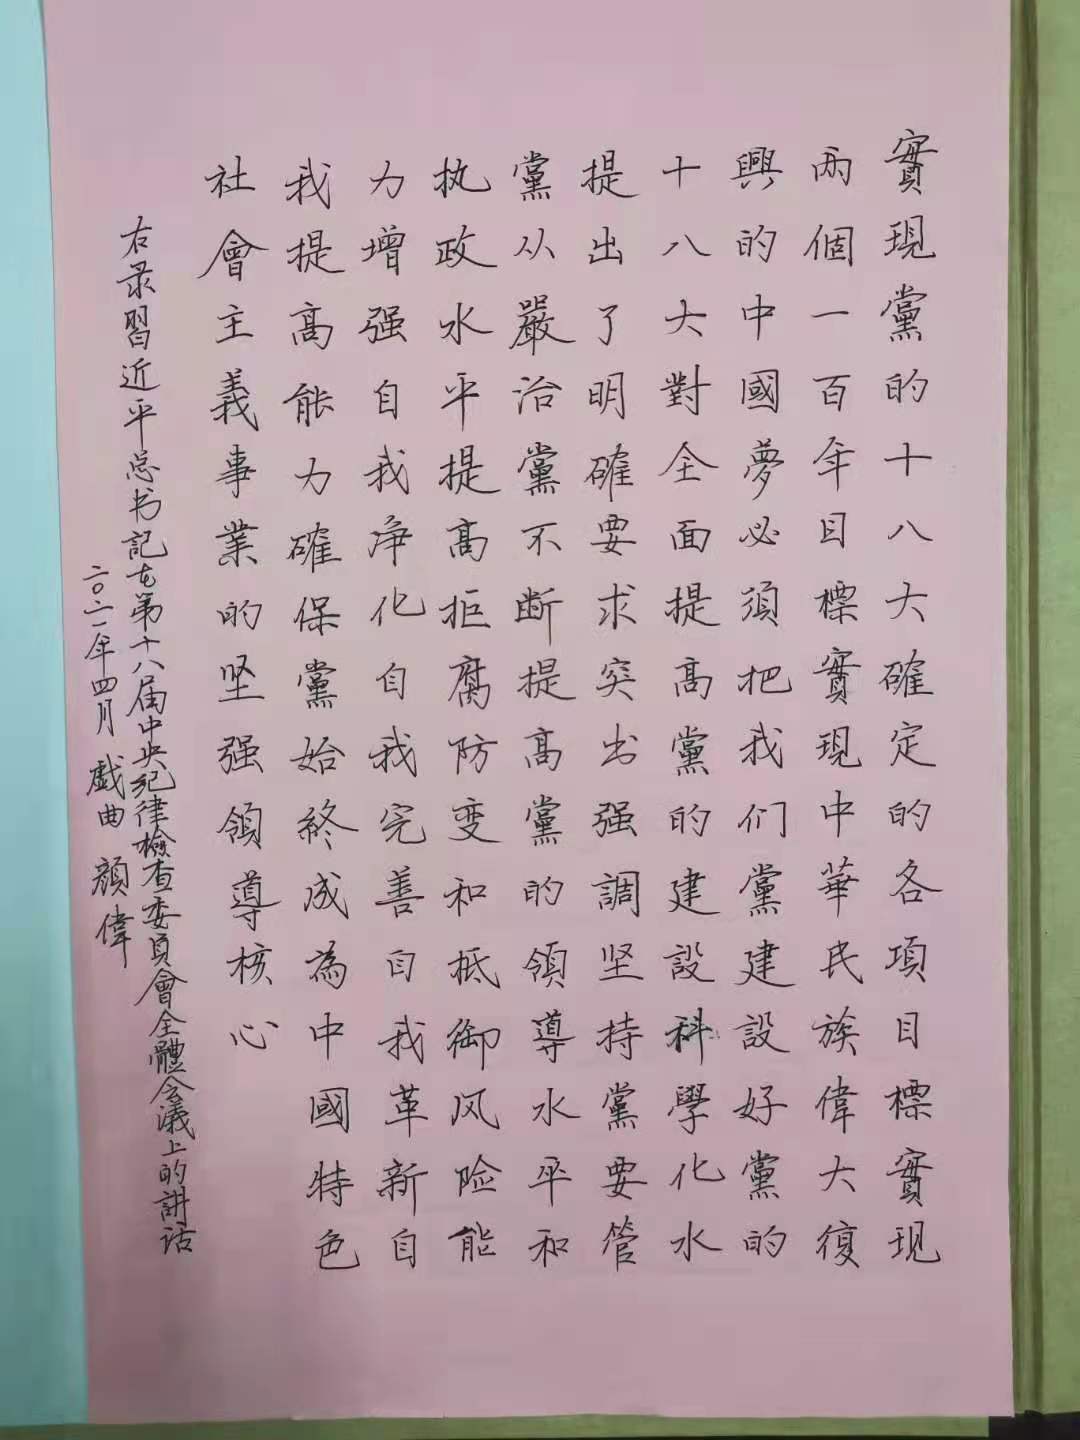 實現黨的十八大確定的各項目標實現
两個一百年目標實現中華民族偉大復
興的中國夢必須把我们黨建設好黨的
十八大對全面提高黨的建設科學化水
提出了明確要求突出强調坚持黨要管
黨从嚴治黨不断提高黨的領導水平和
执政水平提高拒腐防变和抵御风险能
力增强自我净化自我完善自我革新自
我提高能力確保黨始終成為中國特色
社會主義事業的坚强領導核心
右录習近平总书記在第十八届中央纪律檢查委員會全體会議上的讲话
二〇二一年四月 戲曲 顔偉